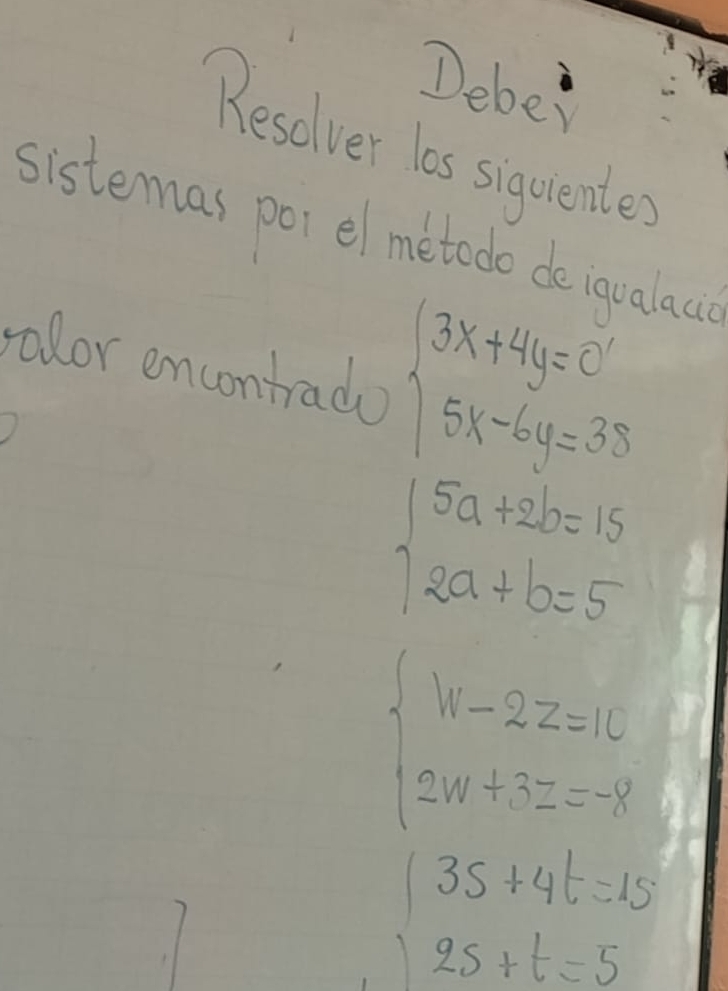 Deber
Resolver los siguientes
sistemas por el método de igualació
valor encontrado
3x+4y=0
5x-6y=38
5a+2b=15
2a+b=5
w-2z=10
2w+3z=-8
3s+4t=15
2s+t=5